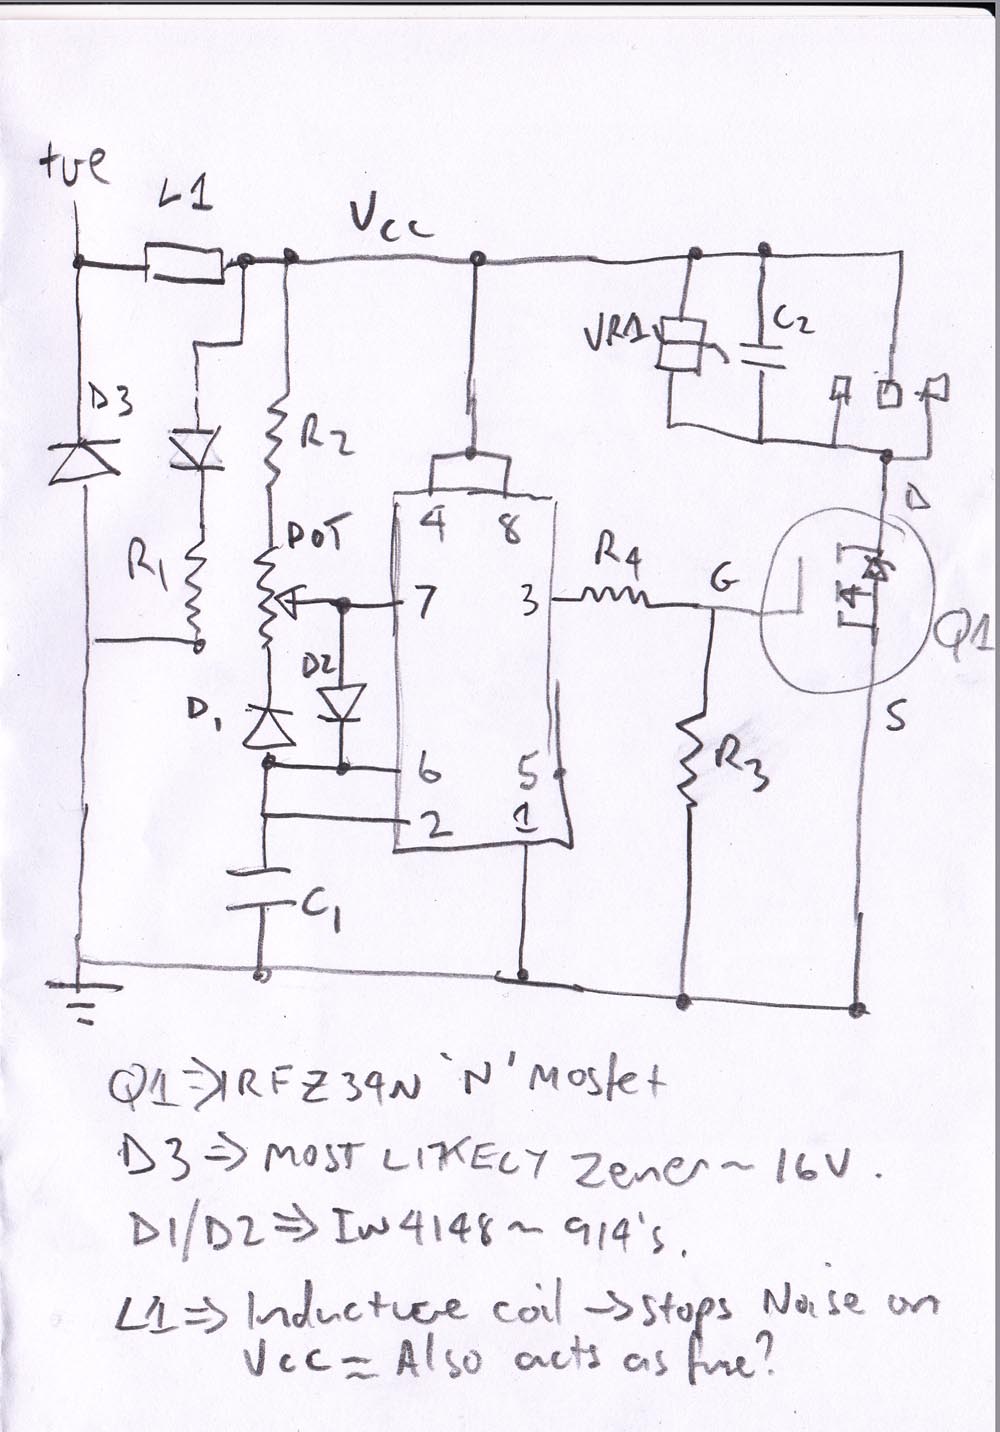 +ve
L1
Vcc
D3
R1
R2
POT
D1
D2
C1
4 8
7
3
6
5
2
1
R4
G
R3
VR1
C2
D
Q1
S
Q1 ⇒ IRFZ34N 'N' Mosfet
D3 ⇒ MOST LIKELY Zener ~ 16V.
D1/D2 ⇒ IN4148 ~ 914's.
L1 ⇒ Inductive coil → stops Noise on
Vcc = Also acts as fuse?